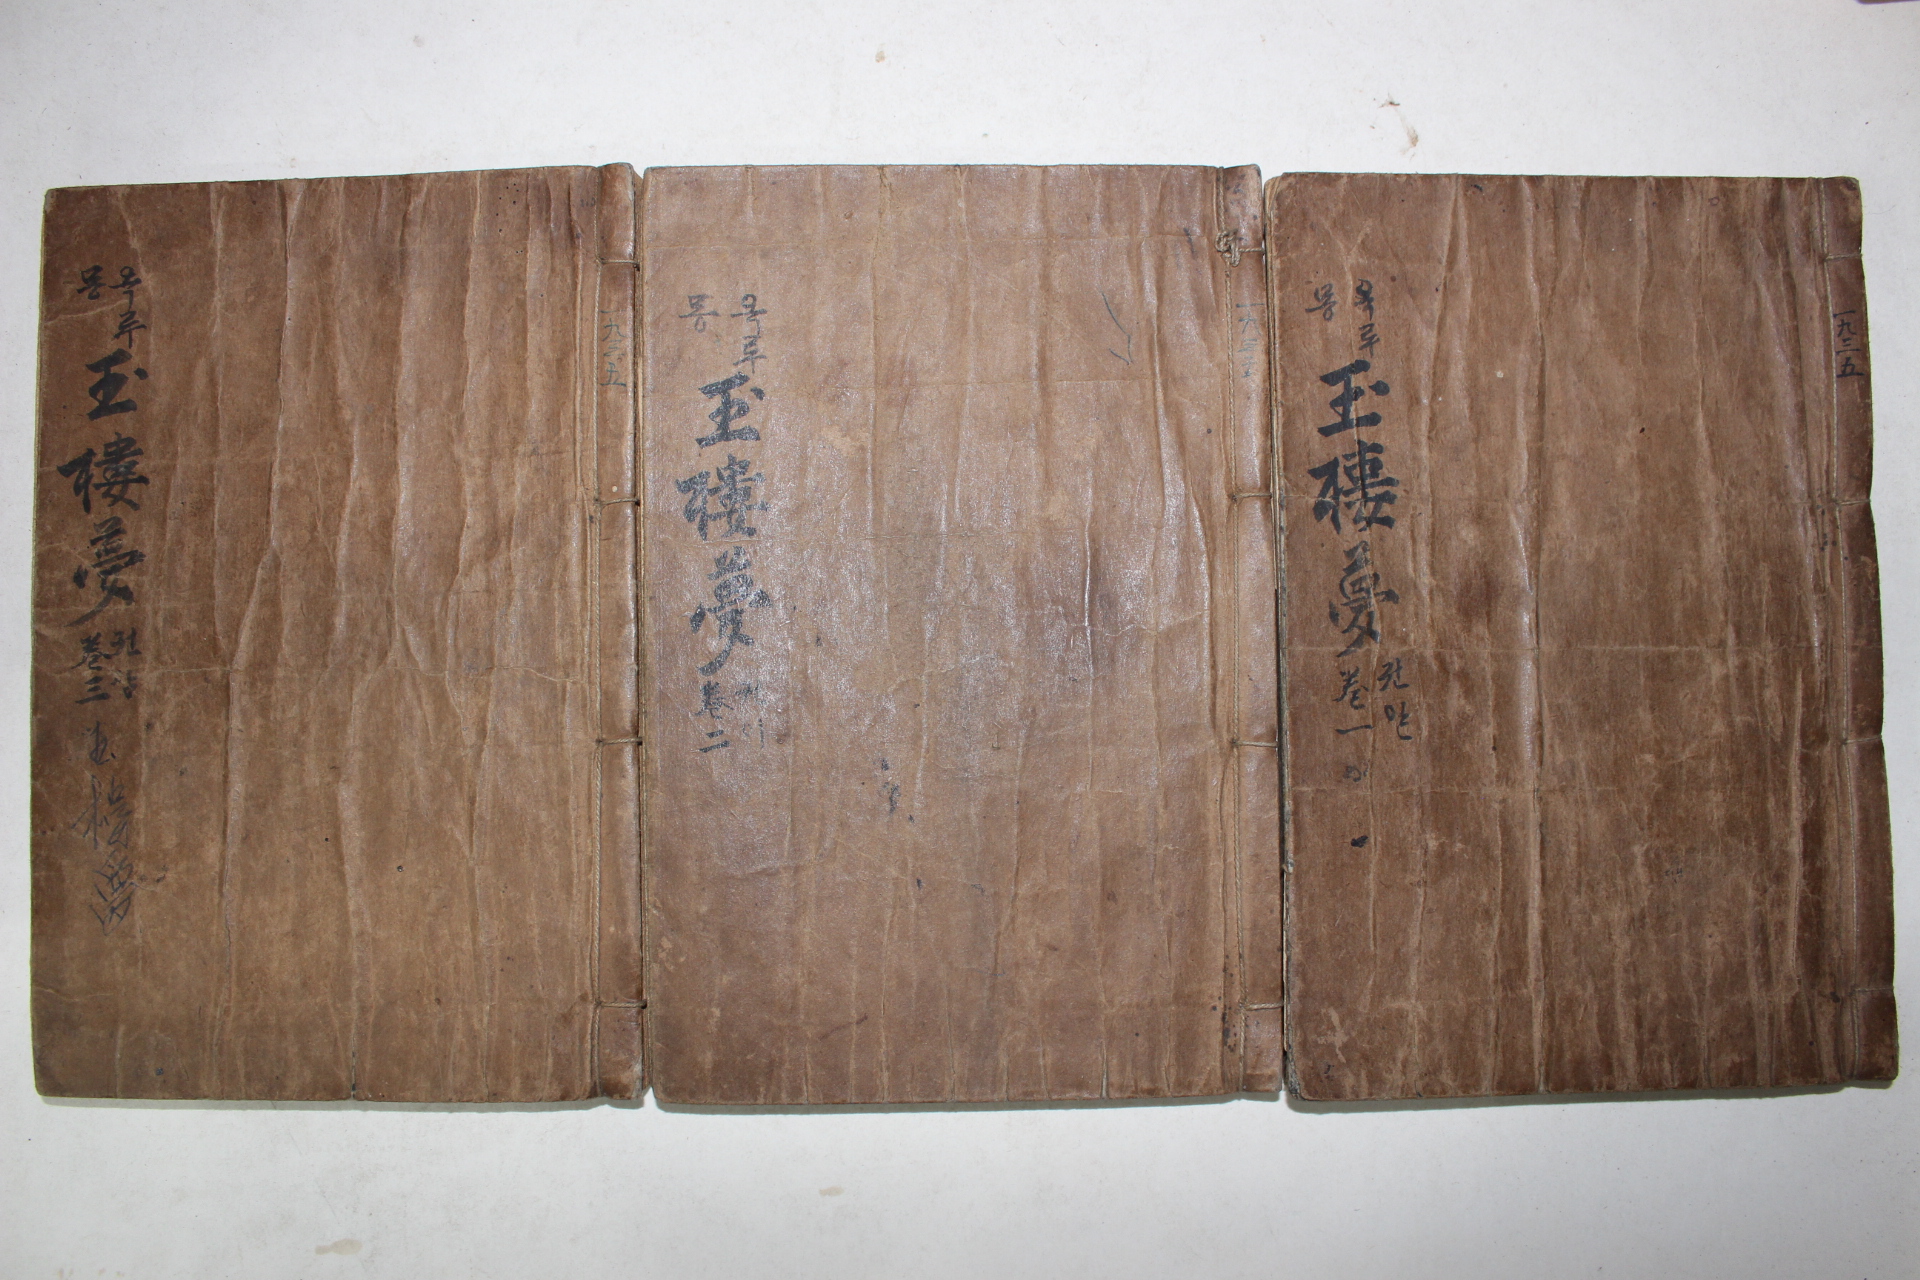 一九三五
옥루
몽
玉樓夢
권
卷一
一九三五
옥루
몽
玉樓夢
卷二
一九三五
옥루
몽
玉樓夢
권삼
卷三
玉樓夢